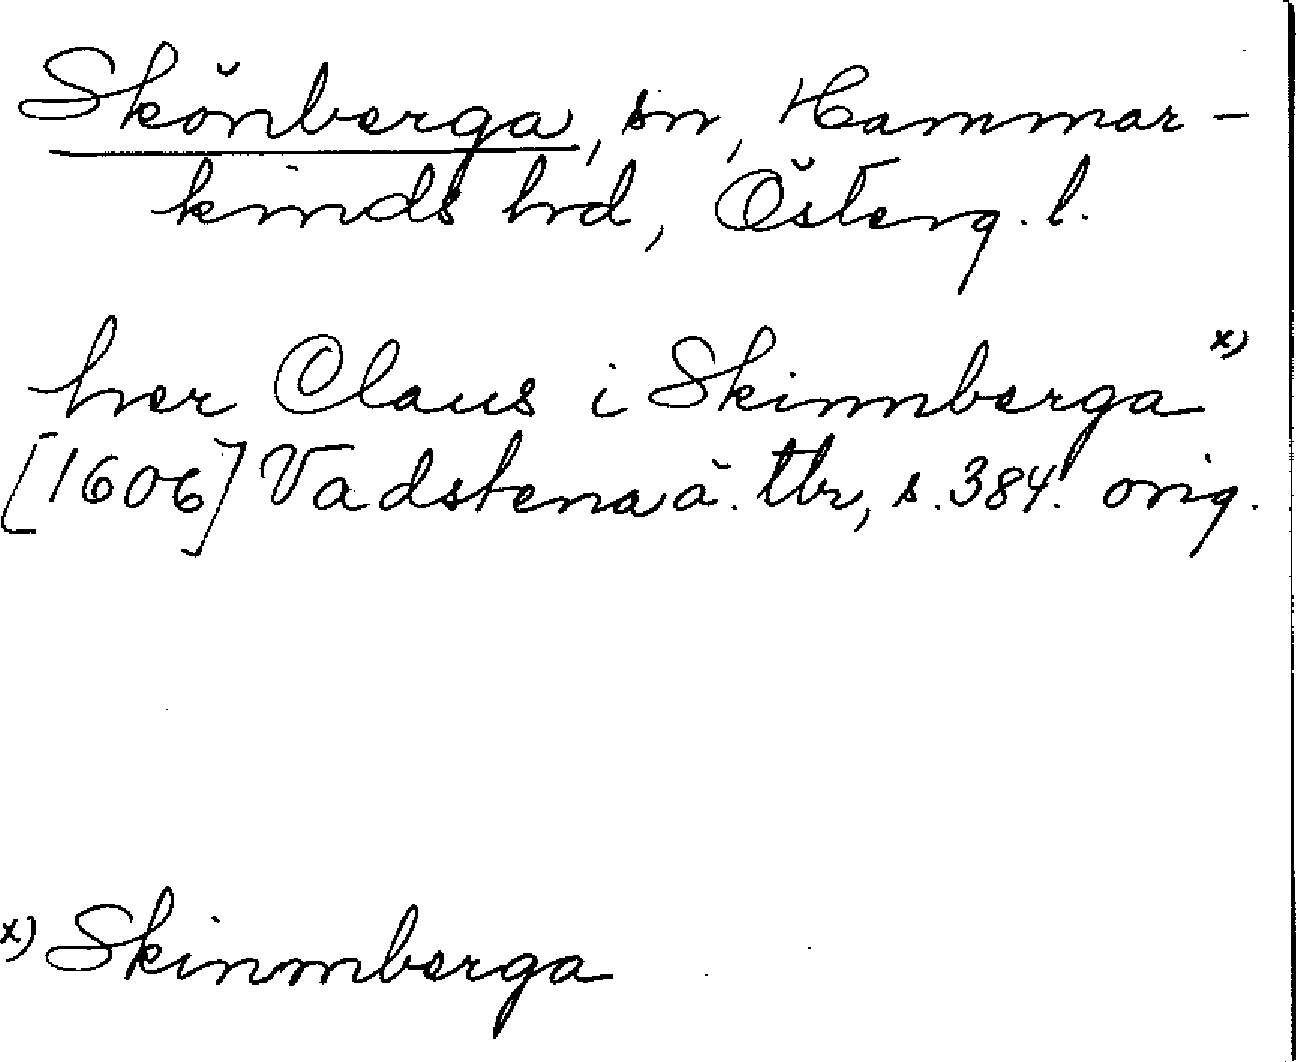 Skönberga, sn, Hammar-
kinds hrd, Österg. l.
her Claus i Skinnberga x)
[1606] Vadstena ä. tbr, s. 384. orig.
x) Skinmberga